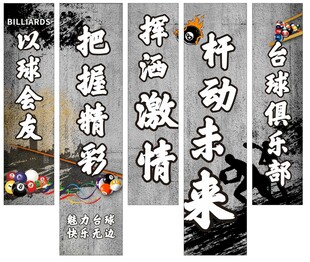 BILLIARDS
以球会友
把握精彩
魅力台球
快乐无边
挥洒激情
杆动未来
台球俱乐部